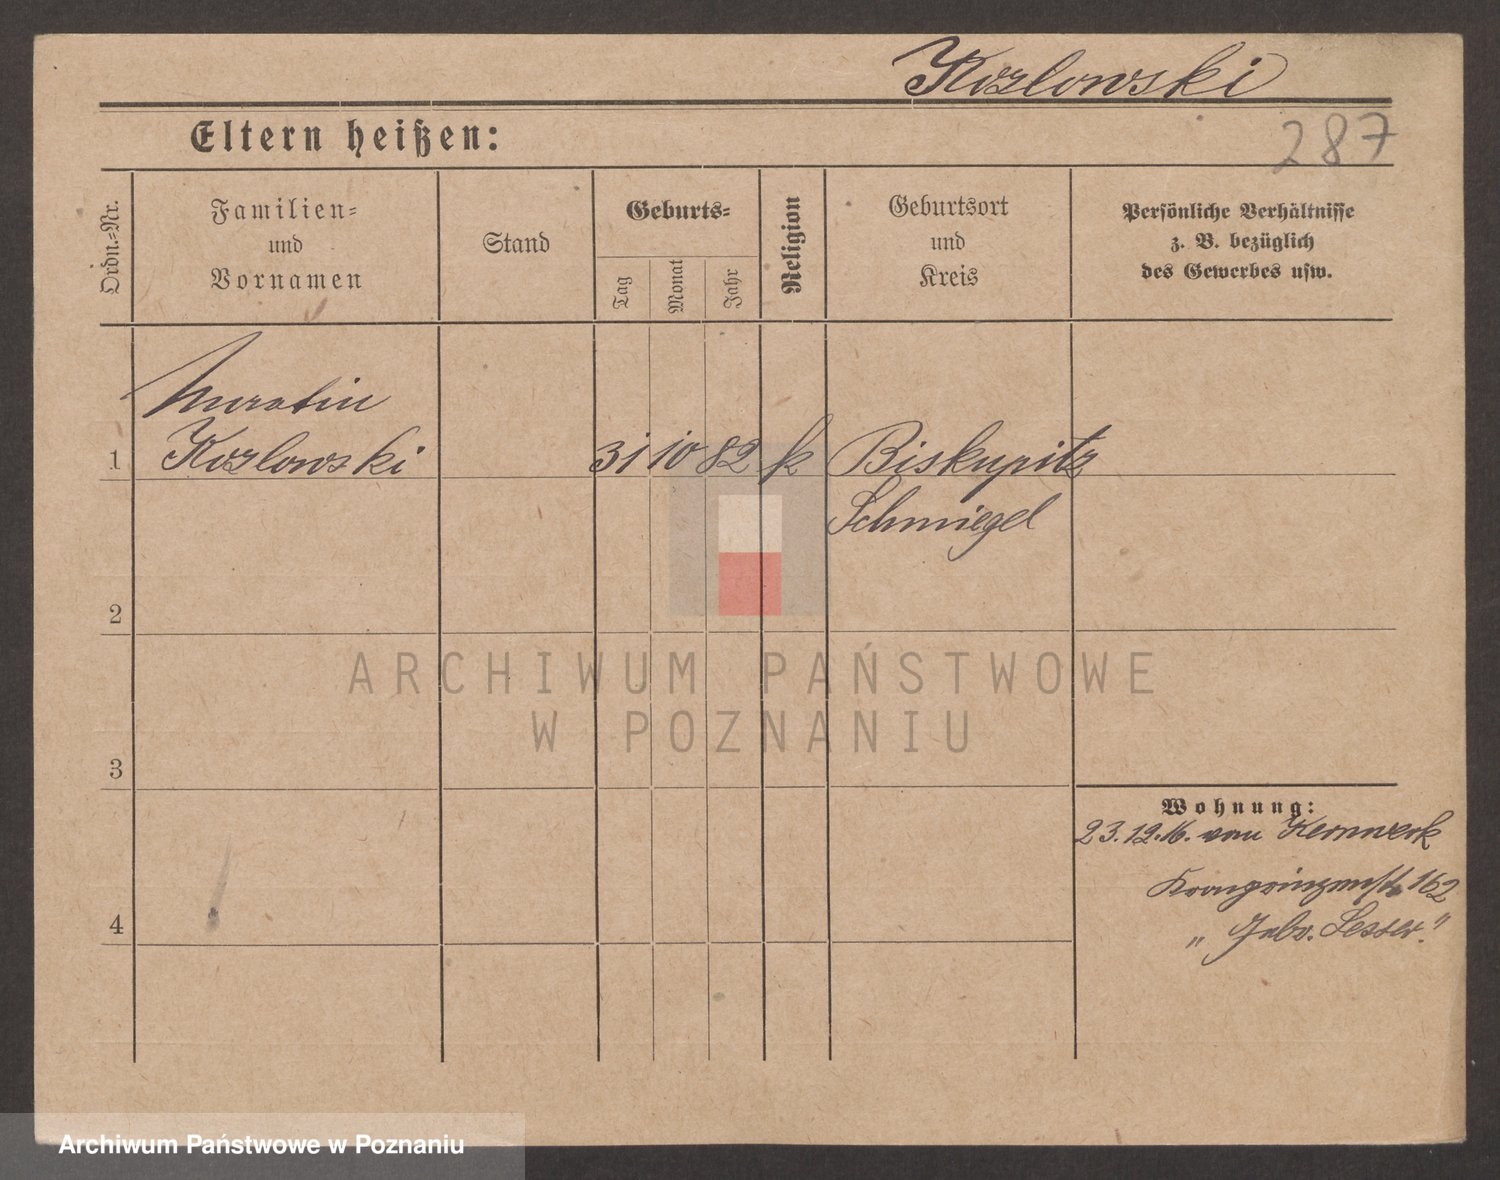 Kozlowski
287
Eltern heißen:
Ordn.-Nr.
Familien-
und
Vornamen
Stand
Geburts-
Tag
Monat
Jahr
Religion
Geburtsort
und
Kreis
Persönliche Verhältnisse
z. B. bezüglich
des Gewerbes usw.
1
Kozlowski
31 10 82 k Biskupitz
Schmiegel
2
3
4
Wohnung:
23.12.16. von Kernwerk
Kronprinzenstr 162
ARCHIWUM PAŃSTWOWE
W POZNANIU
Archiwum Państwowe w Poznaniu